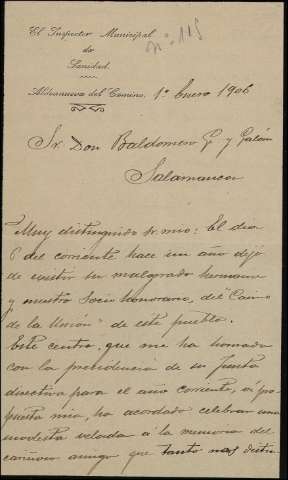 El Inspector Municipal
de
Sanidad.
nº 115
Aldeanueva del Camino, 1º Enero 1906
Sr. Don Baldomero G y Galán
Salamanca
Muy distinguido Sr. mio: El dia
6 del corriente hace un año dejó
de existir su malogrado hermano
y nuestro Socio honorario, del "Casino
de la Unión" de este pueblo.
Este centro, que me ha honrado
con la presidencia de su Junta
directiva para el año corriente, á pro-
puesta mia, ha acordado celebrar una
modesta velada á la memoria del
cariñoso amigo que tanto nos distin